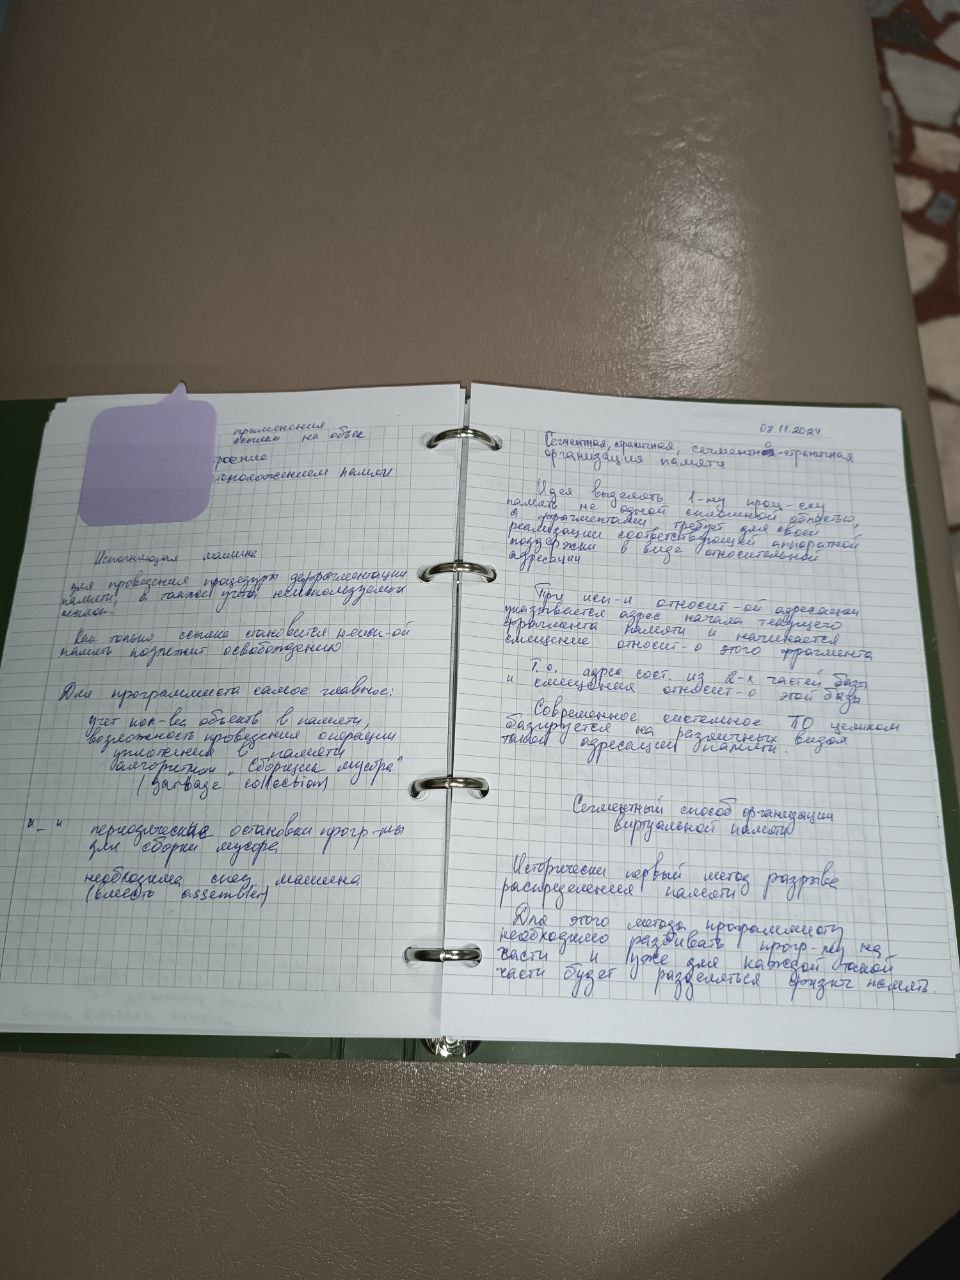 применения
ссылки на объек
роение
сположением памяти
Исполняющая машина
для проведения процедуры дефрагментации
памяти, а также учета неиспользуемых
ссылок.
Как только ссылка становится неисп-ой
память подлежит освобождению
Для программиста самое главное:
учет кол-ва объекты в памяти,
возможность проведения операции
уплотнения памяти
алгоритмы "Сборщик мусора"
(garbage collection)
"-" периодические остановки прогр-мы
для сборки мусора
необходима спец машина
(вместо assembler)
08.11.2024
Сегментная, страничная, сегментно-страничная
организация памяти
Идея выделять 1-му проц-ссу
память не одной сплошной областью,
а фрагментами требует для своей
реализации соответствующей аппаратной
поддержки в виде относительной
адресации
При исп-и относит-ой адресации
указывается адрес начала текущего
фрагмента памяти и начинается
смещение относит-о этого фрагмента
Т.о. адрес сост. из 2-х частей базы
и смещения относит-о этой базы
Современное системное ПО целиком
базируется на различных видах
такой адресации памяти.
Сегментный способ организации
виртуальной памяти
Исторически первый метод разрыва
распределения памяти
Для этого метода программисту
необходимо разбивать прогр-му на
части и уже для каждой такой
части будет разделяться физич память.